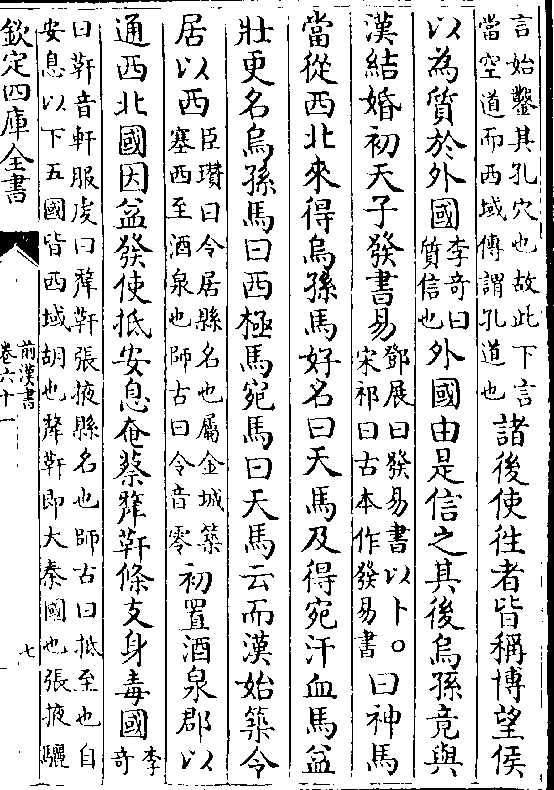 言始鑿其孔穴也故此下言
當空道而西域傳謂孔道也
諸後使往者皆稱博望侯
以為質於外國
李竒曰
質信也
外國由是信之其後烏孫竟與
漢結婚初天子發書易
鄧展曰發易書以卜○
宋祁曰古本作發易書
曰神馬
當從西北來得烏孫馬好名曰天馬及得宛汗血馬益
壯更名烏孫馬曰西極馬宛馬曰天馬云而漢始築令
居以西
臣瓚曰令居縣名也屬金城築
塞西至酒泉也師古曰令音零
初置酒泉郡以
通西北國因益發使抵安息奄蔡犛靬條支身毒國
李
竒
曰靬音軒服虔曰犛靬張掖縣名也師古曰抵至也自
安息以下五國皆西域胡也犛靬即大秦國也張掖驪
欽定四庫全書
前漢書
卷六十一
七